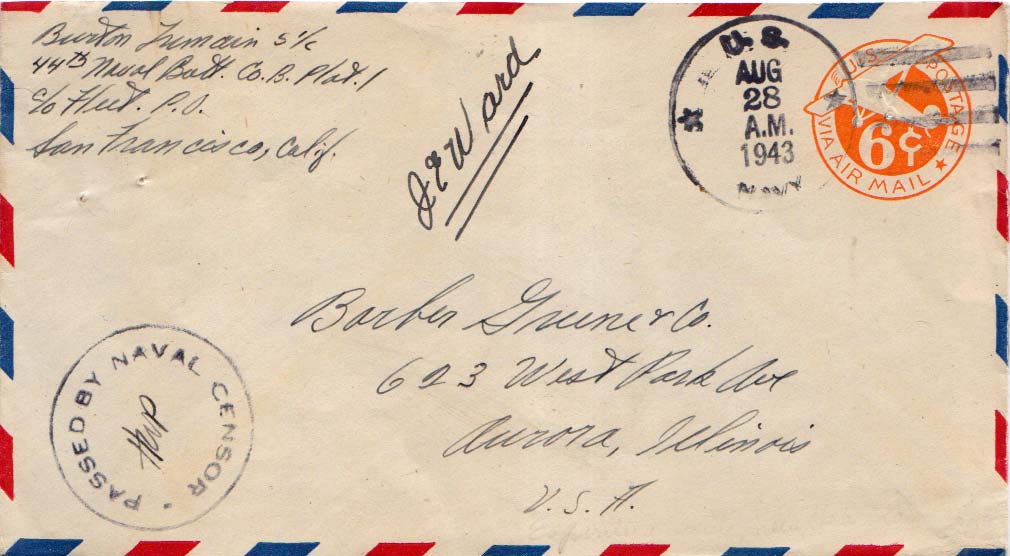 Burton Tumain S 1/c
44th Naval Batt. Co. B. Plat. 1
c/o Fleet. P.O.
San Francisco, Calif.
J E Ward
U.S.
AUG
28
A.M.
1943
NAVY
U.S. POSTAGE
6¢
VIA AIR MAIL
Barber Greene & Co.
623 West Park Ave
Aurora, Illinois
U.S.A.
PASSED BY NAVAL CENSOR